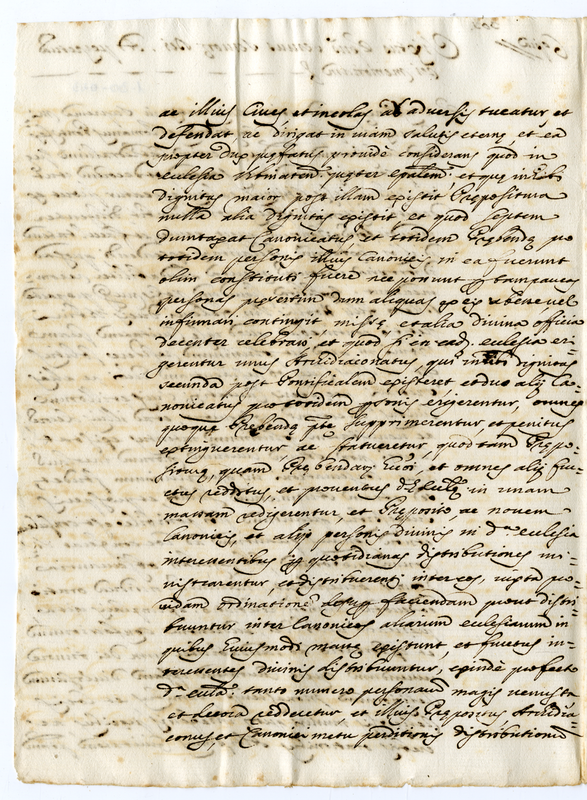 ac illius Cives et incolas ab adversis tueatur et
defendat ac dirigat in viam salutis eterne et ea
propter Dux prefatus provide considerans quod in
eclesia
Dignitas maior post illam existit Prepositura
nulla alia Dignitas existit, et quod septem
dumtaxat Canonicatus et totidem Prebende pro
totidem personis illius Canonicis in ea fuerunt
olim constituti fuere nec possunt tam paucas
personas presertim dum aliquas ex eis abesse vel
infirmari contingit missas, et alia divina officia
decenter celebrari, et quod si in ead. eclesia eri-
gerentur unus Archidiaconatus, qui inibi dignitas
secunda post Pontificalem existeret et duo alij Ca-
nonicatus pro totidem personis erigerentur, omnes
quoque Prebende supprimerentur, et penitus
extinguerentur, ac statueretur, quod tam Prepo-
siture, quam Prebendarum et omnes alij fru-
ctus redditus, et proventus in unam
massam redigerentur, et Preposito, ac novem
Canonicis, et alijs personis divinis in d.a eclesia
interessentibus quotidianas distributiones mi-
nistrarentur, et distribuerentur inter eos, iuxta pro-
vidam ordinationem faciendam prout distri-
buuntur inter Canonicos aliarum eclesiarum in
quibus huiusmodi existunt et fructus in-
teressentes divinis distribuuntur, exinde profecto
d.a tanto numero personarum magis venusta
et decora redderetur, et illius Prepositus Archidia-
conus, et Canonici metu perditionis distributionum